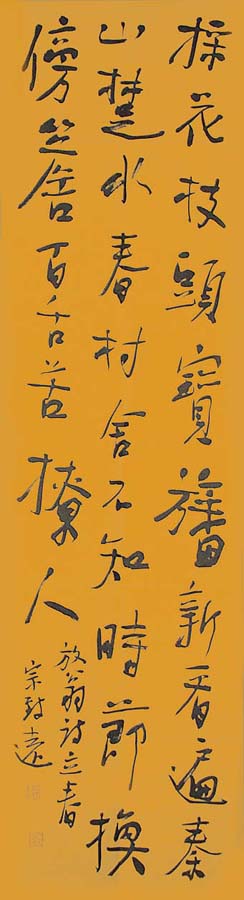 採花枝頭寶旛新看遍秦
山楚水春村舍不知時節換
傍簷百舌苦撩人
放翁詩立春
宗致遠